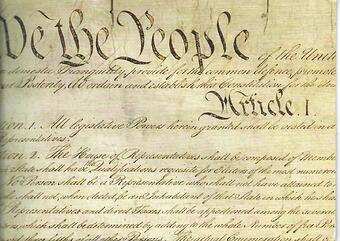 We the People of the Unite
domestic Tranquility, provide for the common defence, promote
Posterity, do ordain and establish this Constitution for the
Article. I
tion. 1. All legislative Powers herein granted shall be vested in a
presentatives.
tion. 2. The House of Representatives shall be composed of Membe
State shall have the Qualifications requisite for Electors of the most numerou
No Person shall be a Representative who shall not have attained to
who shall not, when elected, be an Inhabitant of that State in which he sha
Representatives and direct Taxes shall be apportioned among the severa
which shall be determined by adding to the whole Number of free P
of all other Persons. The actual Enumeration shall